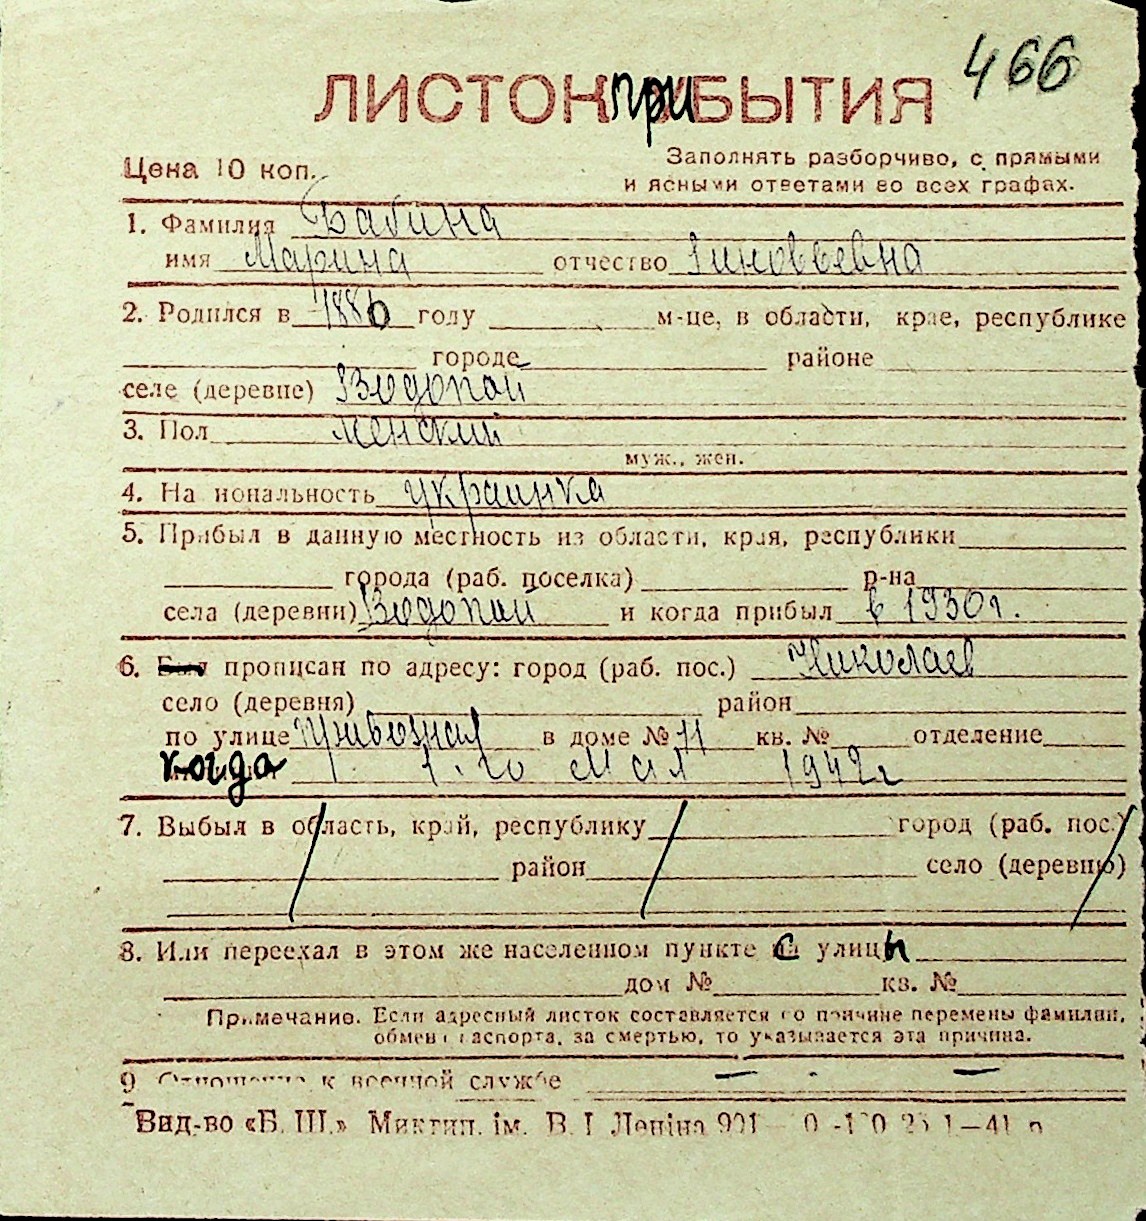 466
ЛИСТОК ПРИБЫТИЯ
Цена 10 коп.
Заполнять разборчиво, с прямыми
и ясными ответами во всех графах.
1. Фамилия Бабина
имя Марина отчество Зиновьевна
2. Родился в 1886 году м-це, в области, крае, республике
городе районе
селе (деревне) Водопой
3. Пол женский
муж., жен.
4. Национальность украинка
5. Прибыл в данную местность из области, края, республики
города (раб. поселка) р-на
села (деревни) Водопой и когда прибыл в 1930 г.
6. Был прописан по адресу: город (раб. пос.) Николаев
село (деревня) район
по улице Привозная в доме № 11 кв. № отделение
когда 1.го Мая 1942 г
7. Выбыл в область, край, республику город (раб. пос.)
район село (деревню)
8. Или переехал в этом же населенном пункте с улицы
дом № кв. №
Примечание. Если адресный листок составляется по причине перемены фамилии,
обмена паспорта, за смертью, то указывается эта причина.
9 Отношение к военной службе — —
Вид-во «Б. Ш.» Миктип. ім. В. І Леніна 901